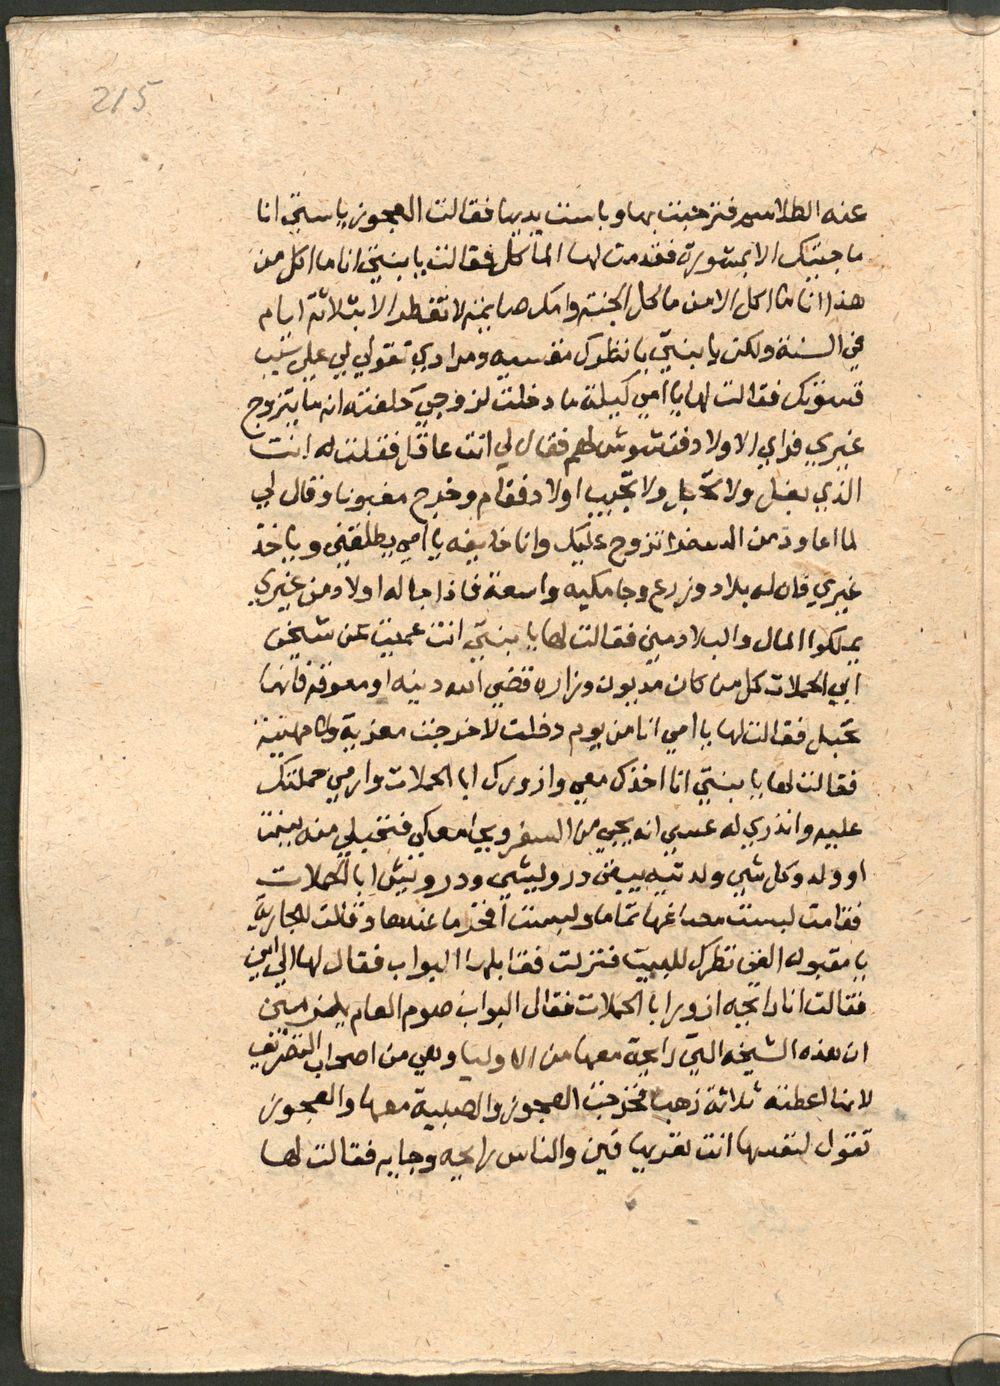 215
عنه الطلاسم فترحبت بها وباست يديها فقالت العجوز يا ستي انا
ما جيتك الا بمشورة فقدمت لها الماكل فقالت يا بنتي انا ما اكل من
هذا انا ما اكل الا من ماكل الجنة وامك صايمة لا تفطر الا ثلاثة ايام
في السنة ولكن يا بنتي بانظرك مقسيه ومرادي تقولي لي علي سبب
قسوتك فقالت لها يا امي كيلة ما دخلت لزوجي حلفته انه ما يتزوج
غيري فراي الاولاد فتشوش لهم فقال لي انت عاقر فقلت له انت
الذي بغل ولا تحبل ولا تجيب اولاد فقام وخرج مغبونا وقال لي
لما اعاود من السفر اتزوج عليك وانا خايفه يا امي يطلقني وياخذ
غيري فان له بلاد وزرع وجامكيه واسعة فاذا جا له اولاد من غيري
يملكوا المال والبلاد مني فقالت لها يا بنتي انت عميت عن شيخي
ابي الحملات كل من كان مديون وزاره قضي الله دينه او معوقة فانها
تحبل فقالت لها يا امي انا من يوم دخلت لا خرجت معزية ولا مهنية
فقالت لها يا بنتي انا اخذك معي وازورك ابا الحملات وارمي حملتك
عليه وانذري له عسي انه يجي من السفر ويجامعكي فتحبلي منه ببنت
او ولد وكل شي ولدتيه يبقي درويشي ودرويش ابا الحملات
فقامت لبست مصاغها تماما ولبست افخر ما عندها وقالت للجارية
يا مقبوله القي نظرك للبيت فنزلت فقابلها البواب فقال لها الي اين
فقالت انا رايحه ازور ابا الحملات فقال البواب صوم العام يلزمني
ان هذه الشيخه التي رايحة معها من الاوليا وهي من اصحاب التصريف
لانها اعطته ثلاثة ذهب فخرجت العجوز والصبية معها والعجوز
تقول لنفسها انت تعريها فين والناس رايحه وجايه فقالت لها